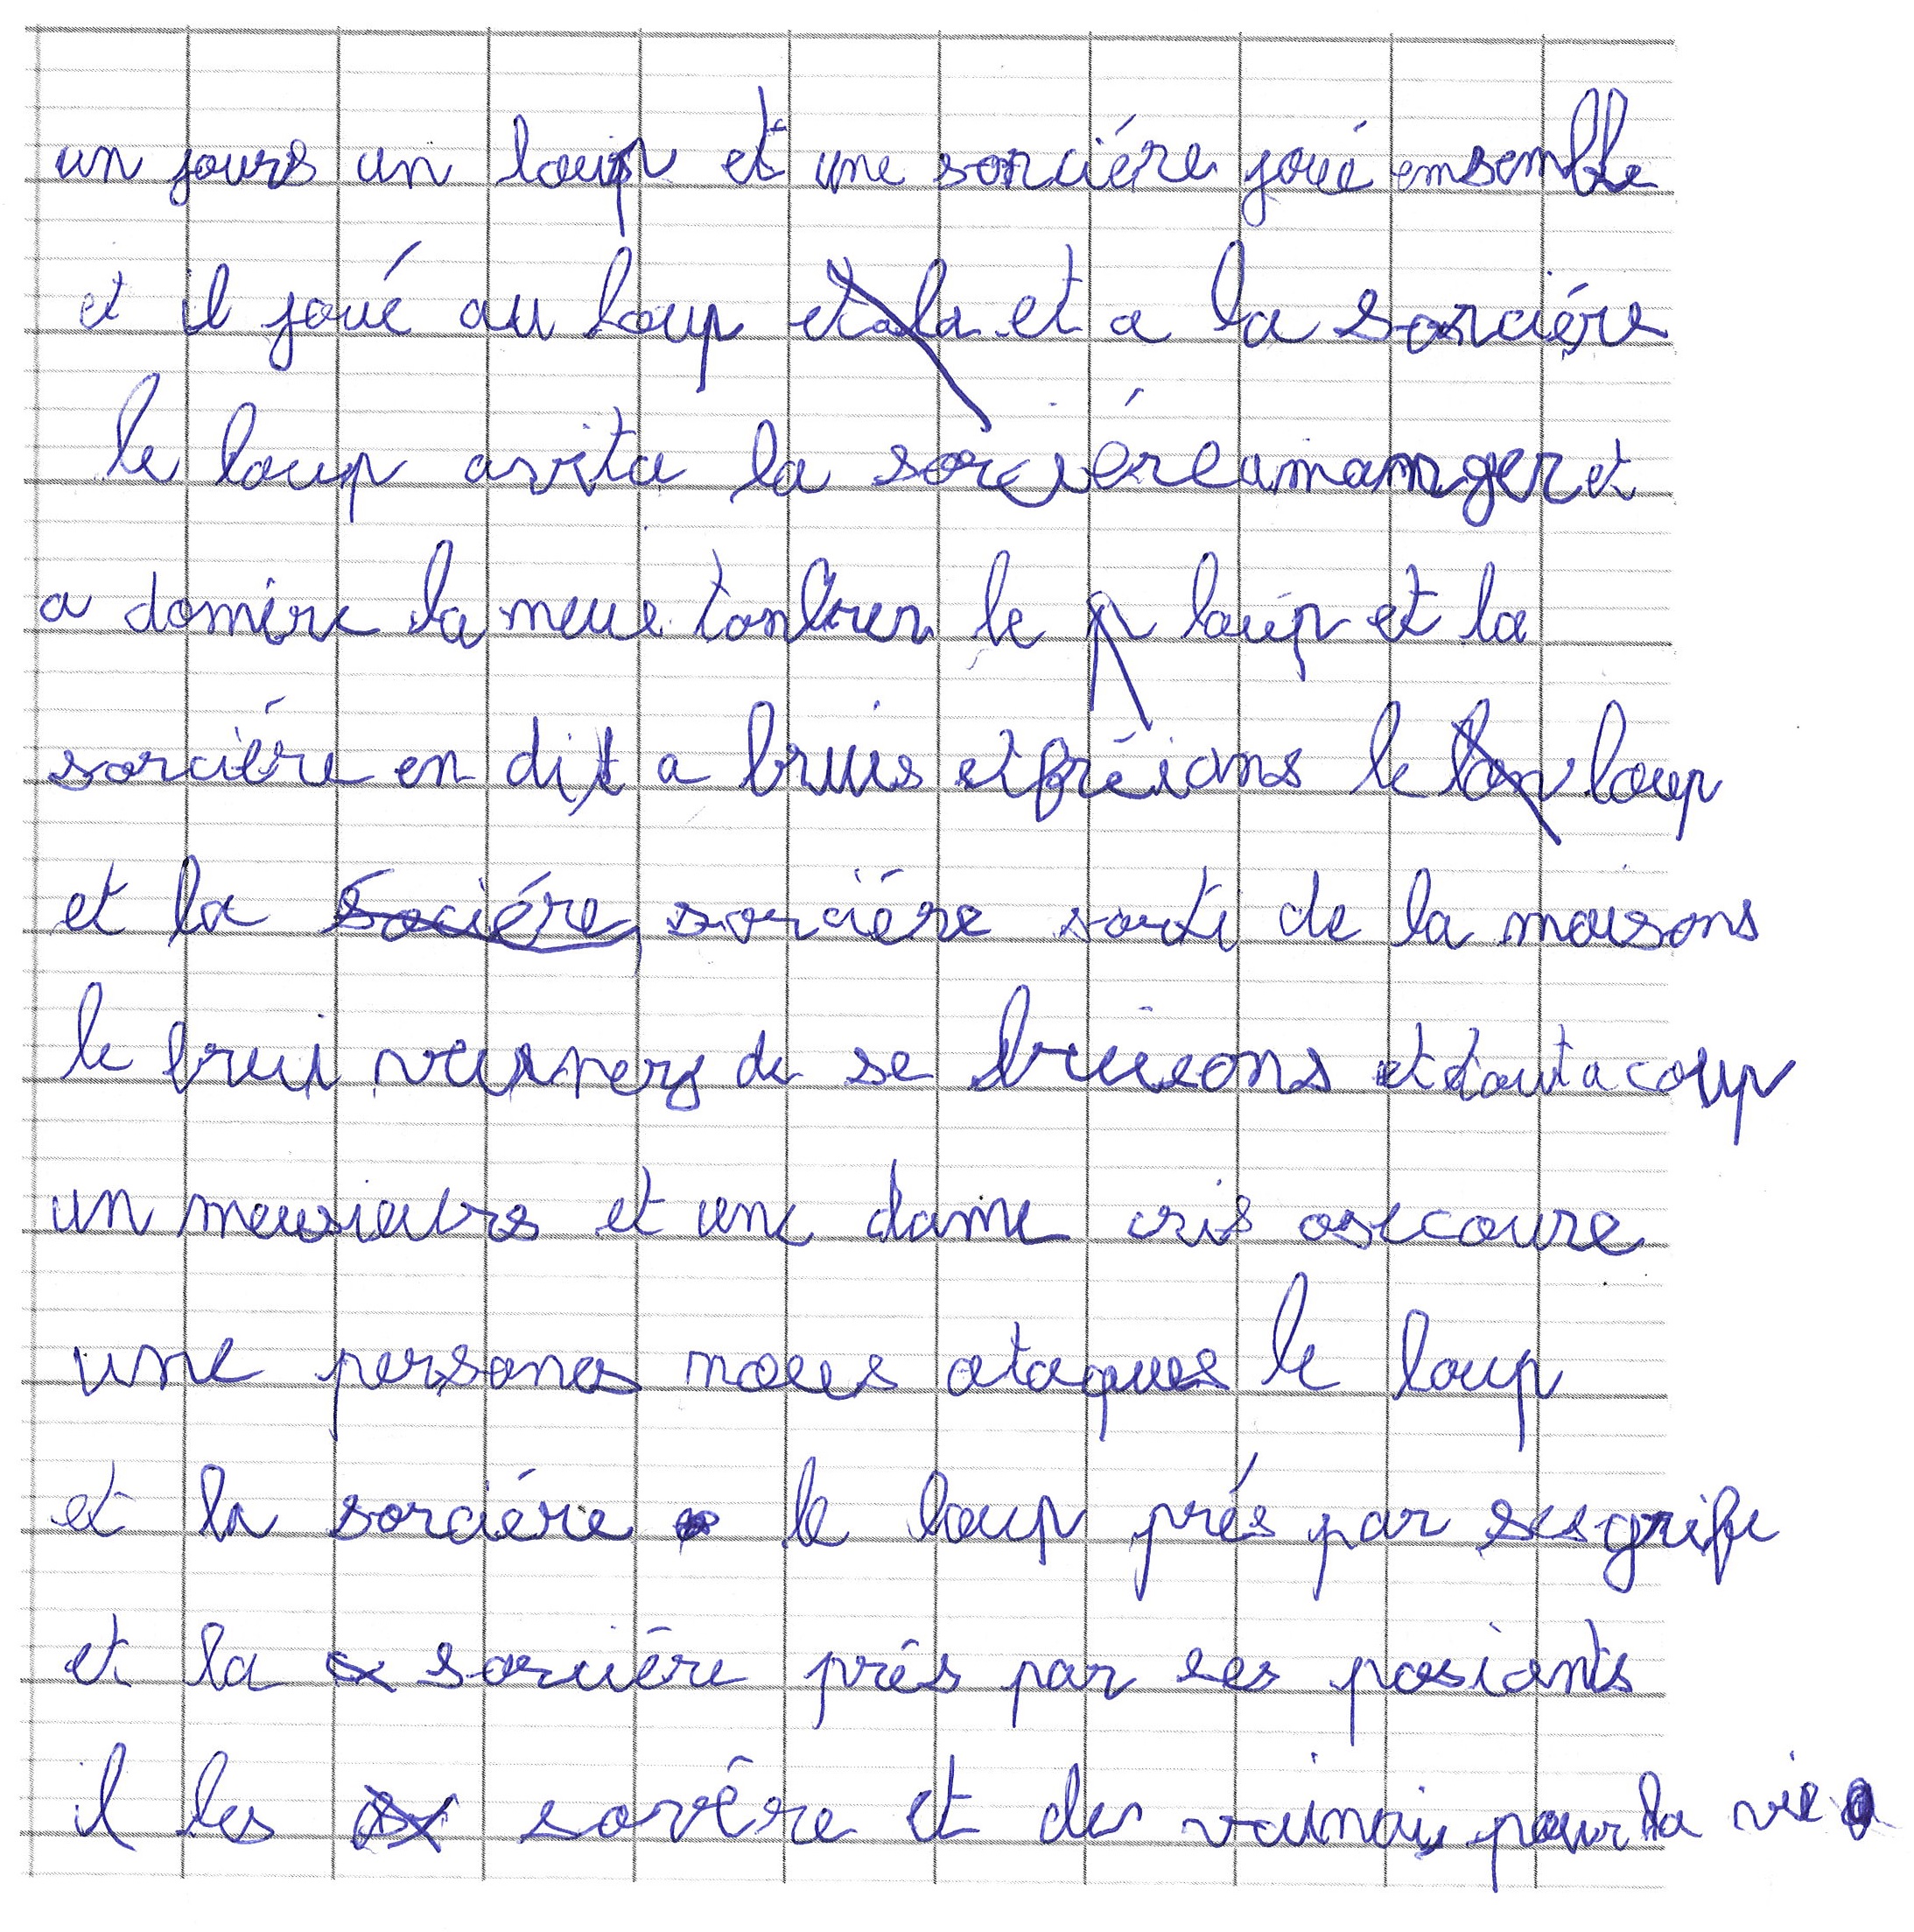 un jours un loup et une sorciére joué ensemble
et il joué au loup et a la et a la sorciére
le loup avita la sorciéreamamger et
a domire la neue tonber le p loup et la
sorciére en dit a bruis éfréians le lou loup
et la sociére sorciére sorti de la maisons
le brui de se bruisons et tout a coup
un meusieurs et une dame cris osecoure
une persones nous ataques le loup
et la sorciére le loup prés par ses grife
et la sorciére prés par ses posionts
il les sovére et der vainai pour la vie